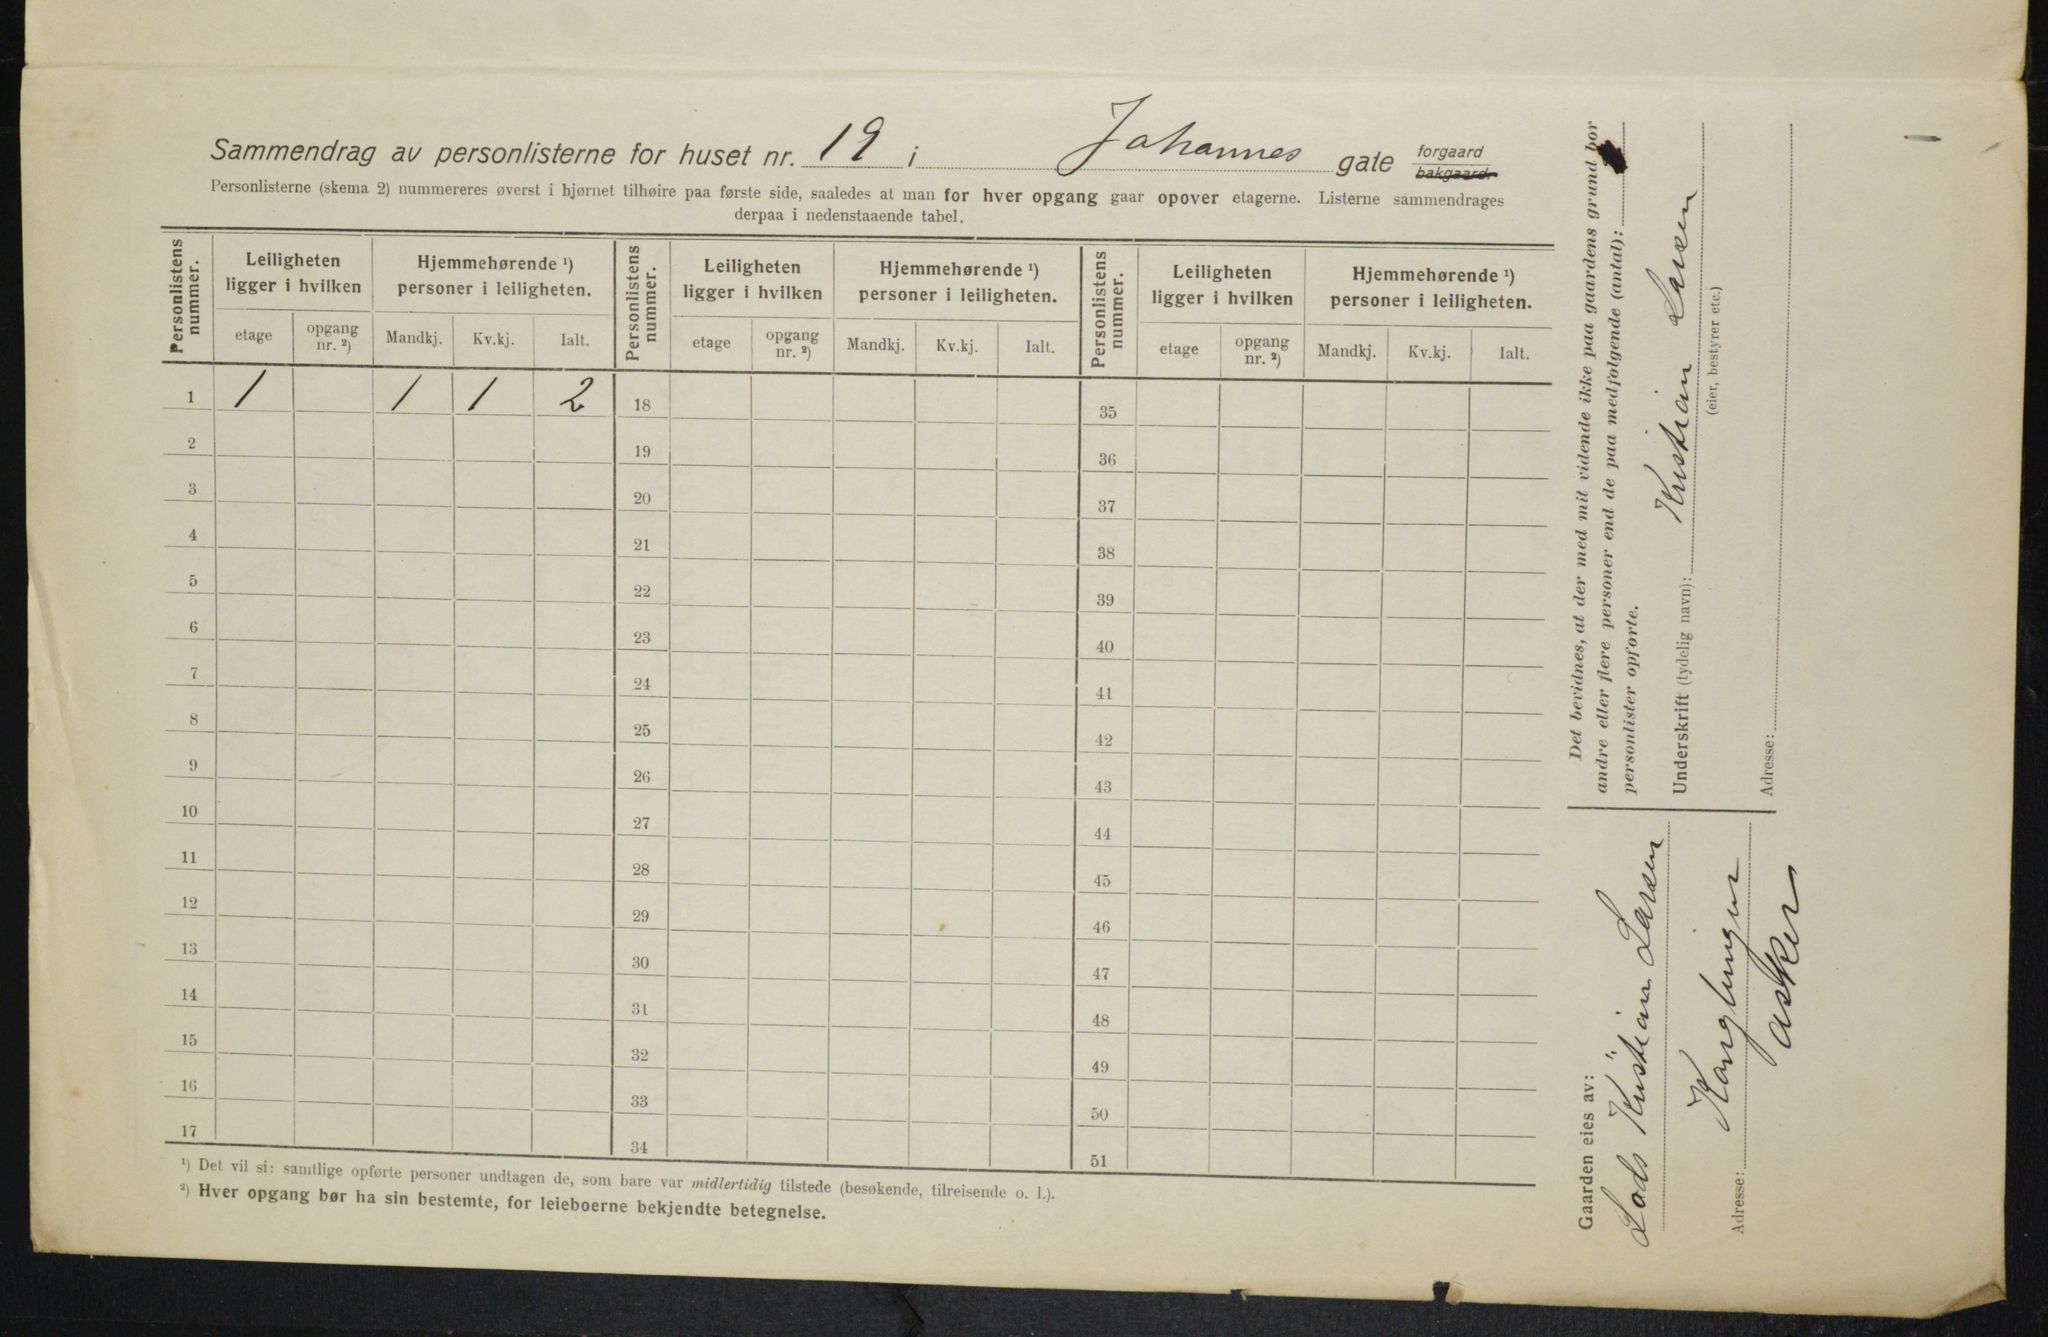 Sammendrag av personlisterne for huset nr. 19 i Johannes gate forgaard bakgaard.
Personlisterne (skema 2) nummereres øverst i hjørnet tilhøire paa første side, saaledes at man for hver opgang gaar opover etagerne. Listerne sammendrages
derpaa i nedenstaaende tabel.
Personlistens nummer. Leiligheten ligger i hvilken Hjemmehørende ¹) personer i leiligheten. Personlistens nummer. Leiligheten ligger i hvilken Hjemmehørende ¹) personer i leiligheten. Personlistens nummer. Leiligheten ligger i hvilken Hjemmehørende ¹) personer i leiligheten.
etage opgang nr. ²) Mandkj. Kv.kj. Ialt. etage opgang nr. ²) Mandkj. Kv.kj. Ialt. etage opgang nr. ²) Mandkj. Kv.kj. Ialt.
1 1 1 1 2 18 35
2 19 36
3 20 37
4 21 38
5 22 39
6 23 40
7 24 41
8 25 42
9 26 43
10 27 44
11 28 45
12 29 46
13 30 47
14 31 48
15 32 49
16 33 50
17 34 51
¹) Det vil si: samtlige opførte personer undtagen de, som bare var midlertidig tilstede (besøkende, tilreisende o. l.).
²) Hver opgang bør ha sin bestemte, for leieboerne bekjendte betegnelse.
Det bevidnes, at der med mit vidende ikke paa gaardens grund bor
andre eller flere personer end de paa medfølgende (antal):
personlister opførte.
Underskrift (tydelig navn): Kristian Larsen
(eier, bestyrer etc.)
Adresse:
Gaarden eies av:
Lods Kristian Larsen
Adresse: Konglungen
Asker